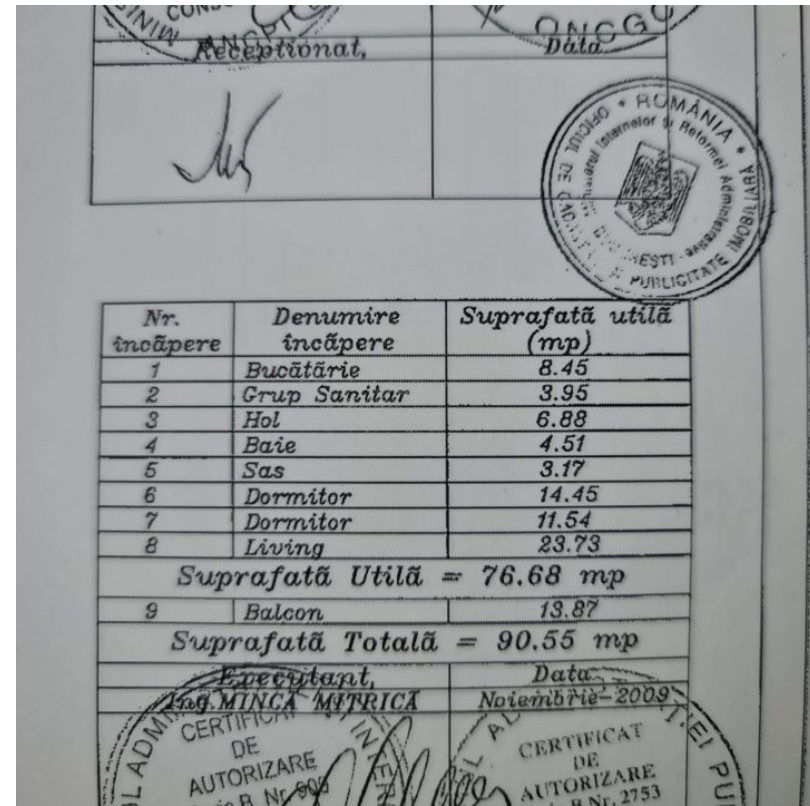 CONS
MINI
ANCPI
ONCGC
Receptionat, Data
* ROMÂNIA *
Ministerul Internelor și Reformei Administrative
OFICIUL DE CADASTRU ȘI PUBLICITATE IMOBILIARĂ
BUCUREȘTI
Nr. încãpere Denumire încãpere Suprafatã utilã (mp)
1 Bucãtãrie 8.45
2 Grup Sanitar 3.95
3 Hol 6.88
4 Baie 4.51
5 Sas 3.17
6 Dormitor 14.45
7 Dormitor 11.54
8 Living 23.73
Suprafatã Utilã = 76.68 mp
9 Balcon 13.87
Suprafatã Totalã = 90.55 mp
Executant, Data
Ing.MINCÃ MITRICÃ Noiembrie-2009
CERTIFICAT CERTIFICAT
DE DE
AUTORIZARE AUTORIZARE
B Nr. B Nr. 2753